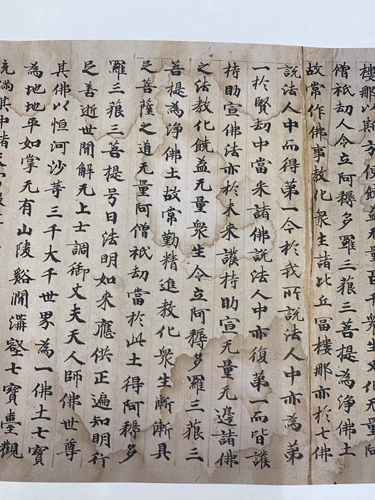 樓那以斯方便饒益无量百千衆生又化无量阿
僧祇劫人令立阿耨多羅三藐三菩提為淨佛土
故常作佛事教化衆生諸比丘富樓那亦於七佛
説法人中而得第一今於我所説法人中亦為第
一於賢劫中當来諸佛説法人中亦復第一而皆護
持助宣佛法亦於未来護持助宣无量无邊諸佛
之法教化饒益无量衆生令立阿耨多羅三藐三
菩提為淨佛土故常勤精進教化衆生漸漸具
足菩薩之道无量阿僧祇劫當於此土得阿耨多
羅三藐三菩提号曰法明如来應供正遍知明行
足善逝世間解无上士調御丈夫天人師佛世尊
其佛以恒河沙等三千大千世界為一佛土七寶
為地地平如掌无有山陵谿澗溝壑七寶臺觀
充滿其中諸天